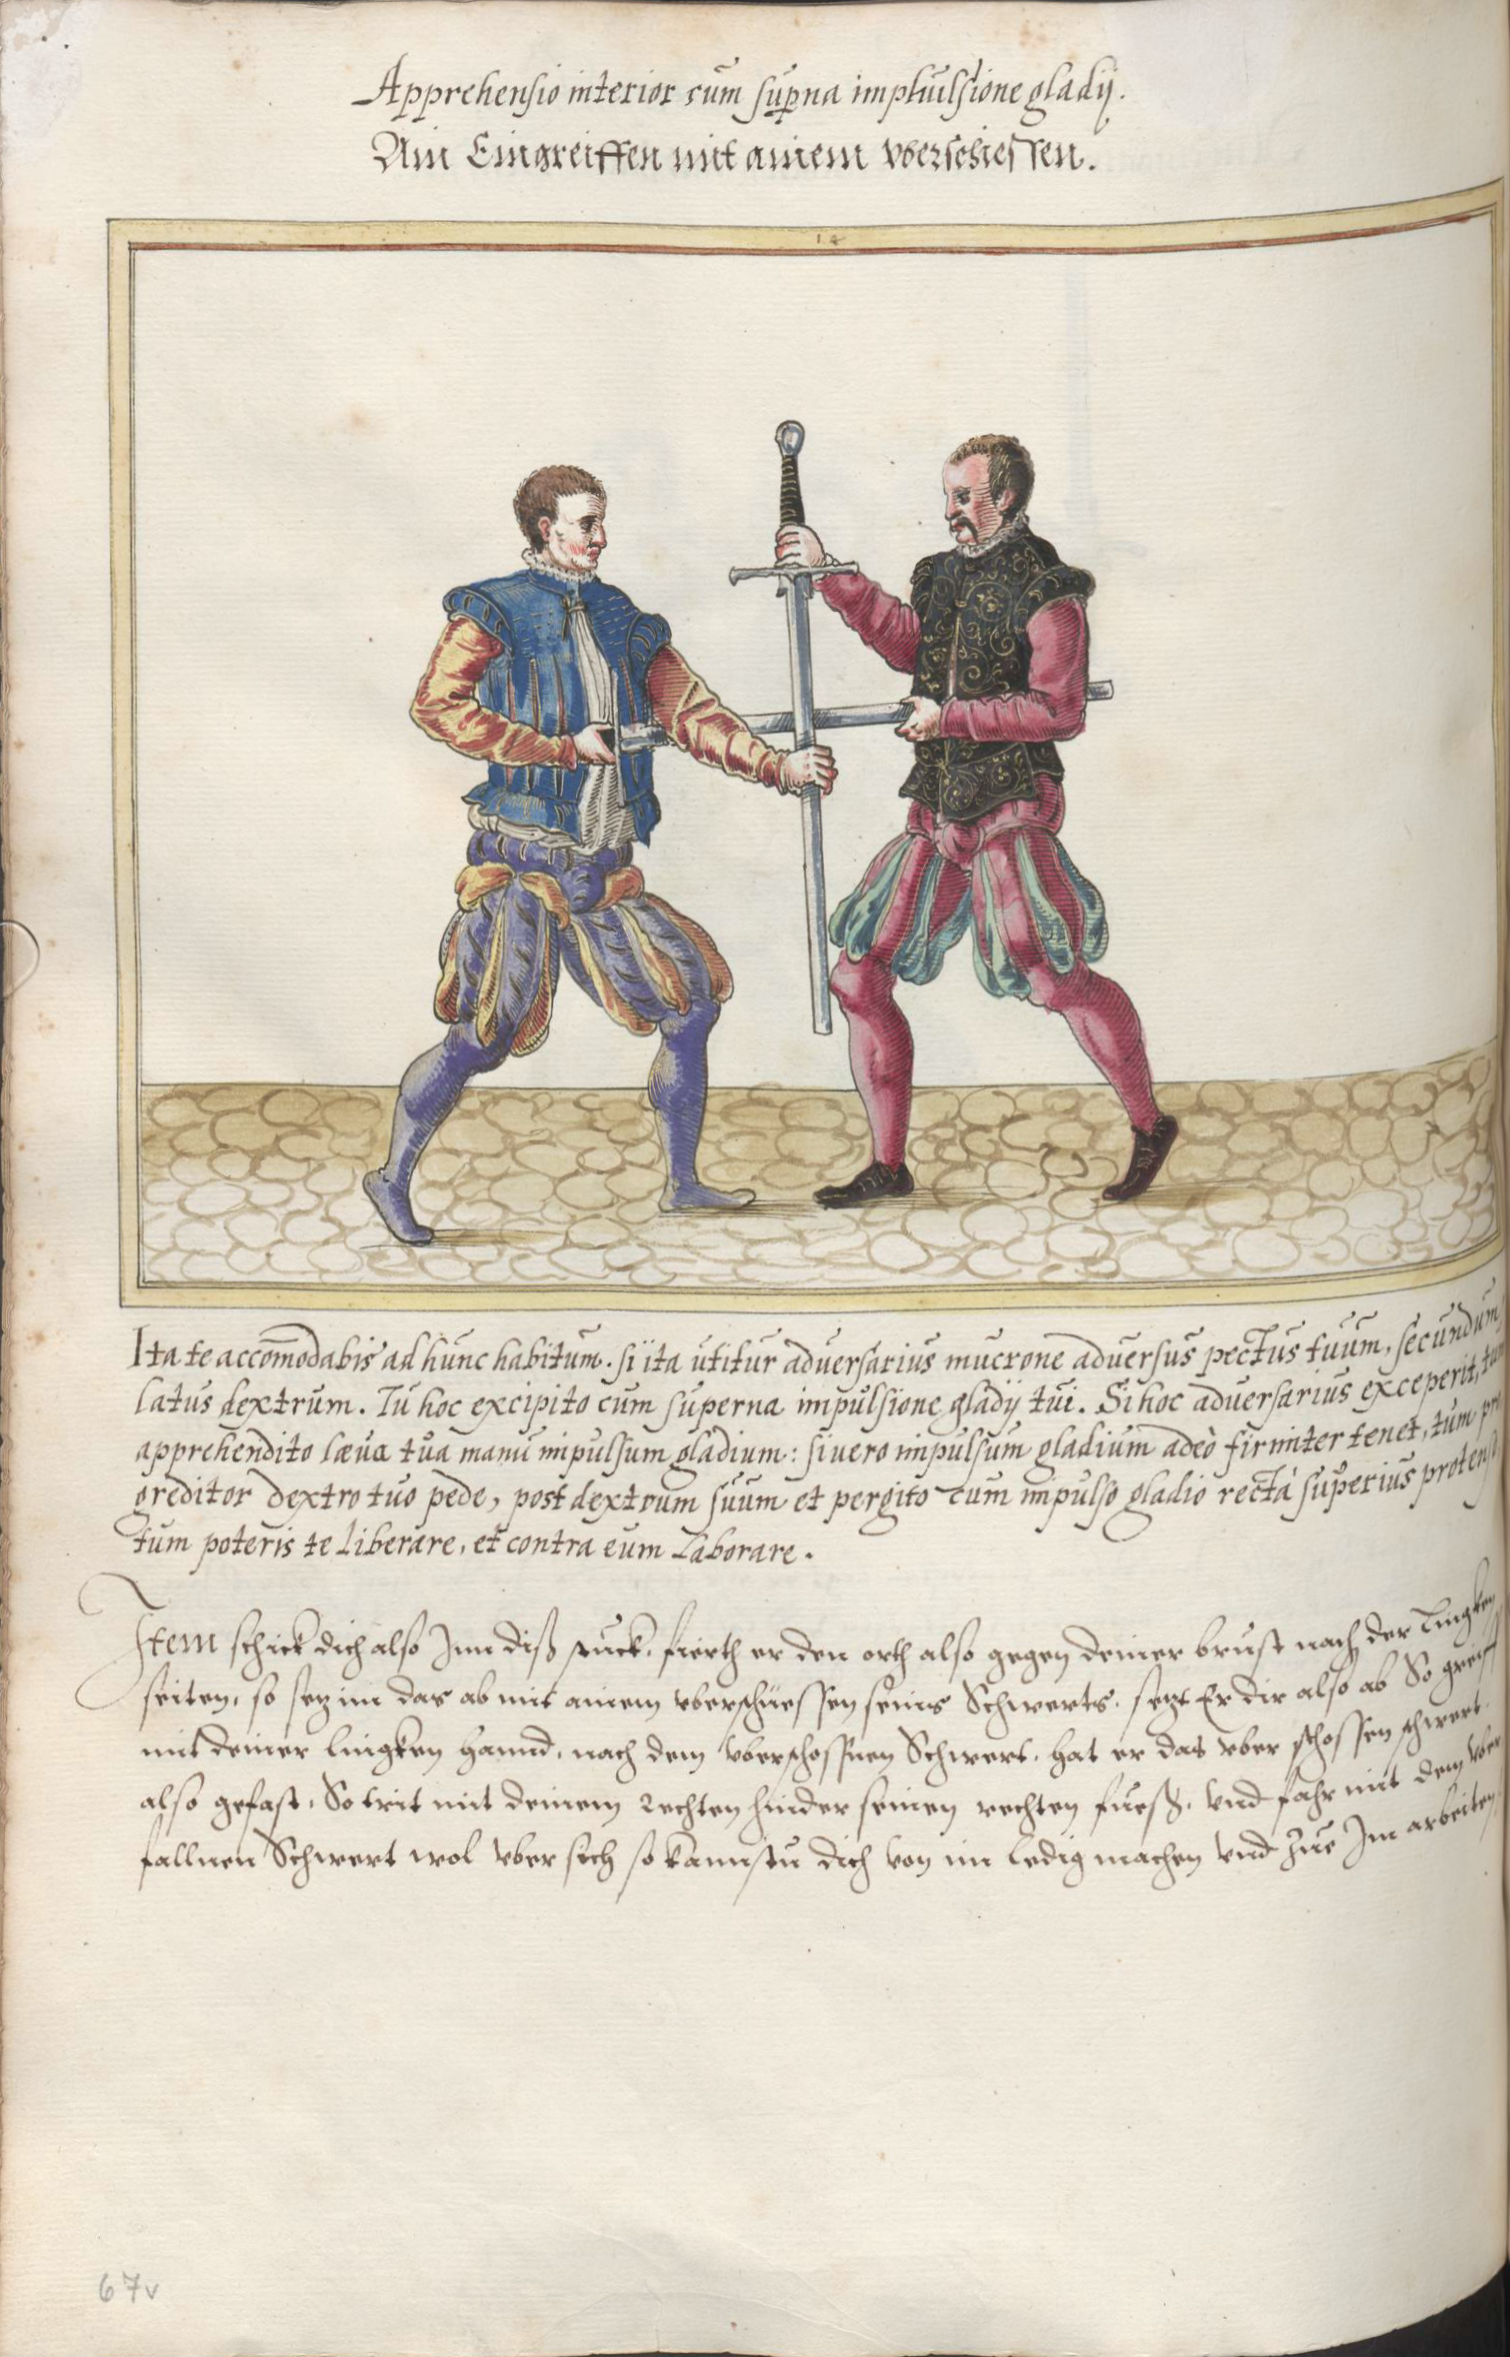 Apprehensio interior cum sup̱na impluulsione gladij.
Ain Eingreiffen mit ainem vberschiessen.
14
Ita te accom̄odabis ad hunc habitum. si ita utitur aduersarius mucrone aduersus pectus tuum, secundum
latus dextrum. Tu hoc excipito cum superna impulsione gladij tui. Si hoc aduersarius exceperit,
apprehendito læua tua manu impulsum gladium: si uero impulsum gladium adeò firmiter tenet, tum pro
greditor dextro tuo pede, post dextrum suum et pergito cum impulso gladio rectà superius
tum poteris te liberare, et contra eum laborare.
Item schick dich also Inn diß stuck, fierth er den orth also gegen deiner brust nach der Lingken
seiten, so setz im das ab mit ainem vberschiessen seines Schwerts. setzt Er dir also ab So greiff
mit deiner lingken hannd, nach dem vberschossnen Schwert, hat er das vber schossen schwert
also gefast, So trit mit deinem rechten hinder seinen rechten fuesß, vnd fahr mit dem vber
fallnen Schwert wol vber sich so kannstu dich von im ledig machen vnd zue Im arbeiten
67v